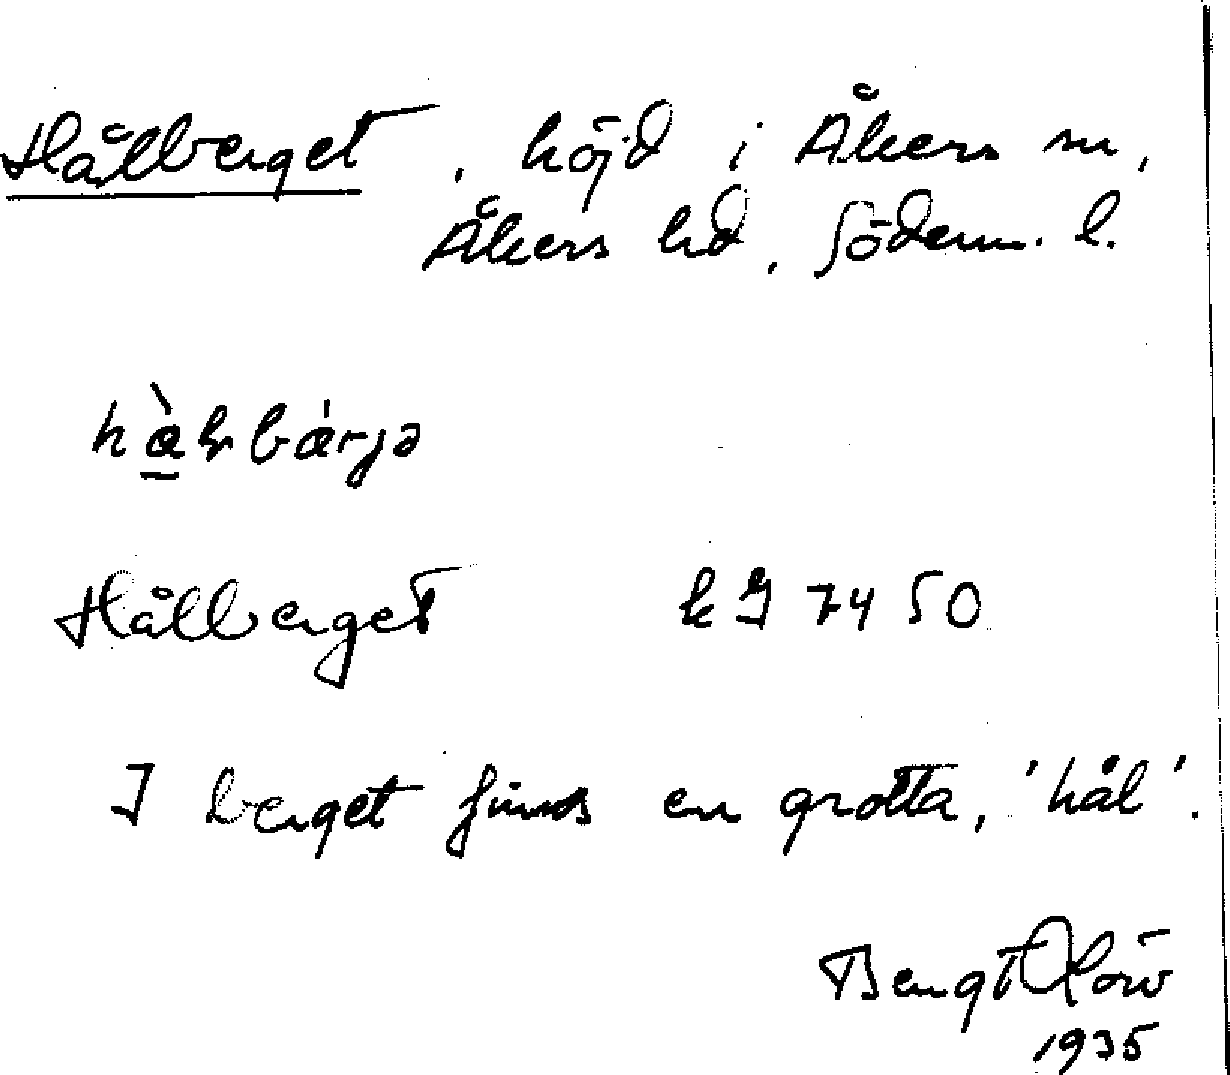 Hålberget, höjd i Åkers sn,
Åkers hd, Söderm. l.
Hålberget kJ 7450
I berget finns en grotta, 'hål'.
Bengt
1935